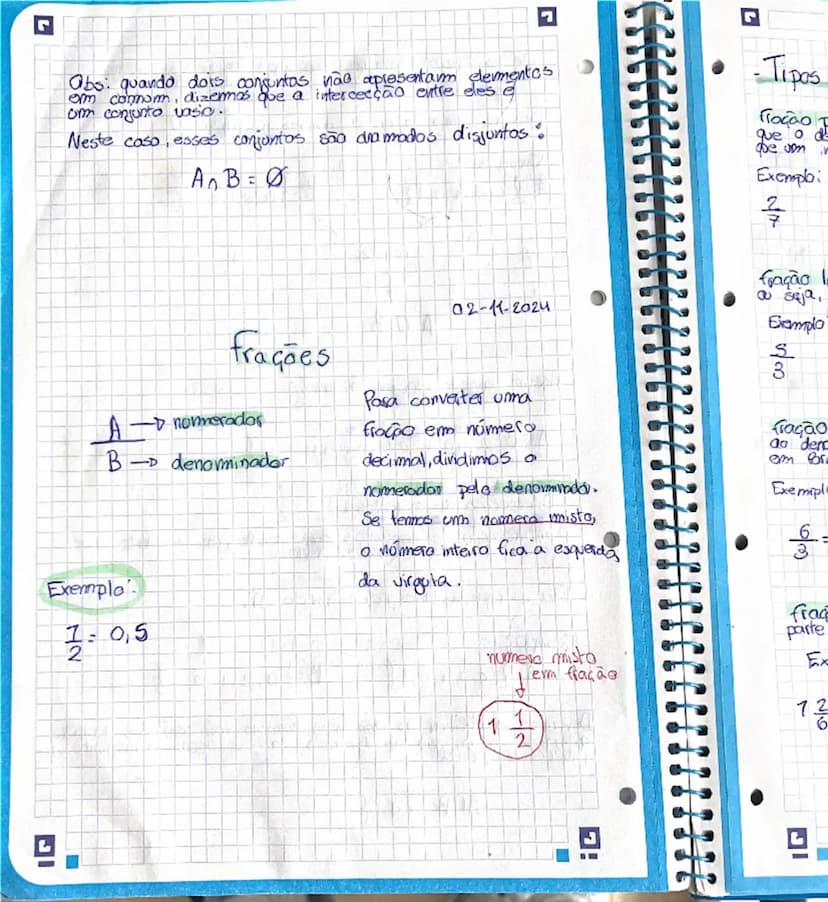 Obs: quando dois conjuntos não apresentam elementos
em comum, dizemos que a intercecção entre eles é
um conjunto vasio.
Neste caso, esses conjuntos são chamados disjuntos:
A∩B = Ø
02-11-2024
Frações
A → numerador
B → denominador
Para converter uma
fração em número
decimal, dividimos o
numerador pelo denominador.
Se temos um numero misto,
o número inteiro fica à esquerda
da virgula.
Exemplo:
1/2 = 0,5
numero misto
em fração
1 1/2
- Tipos
fração
que o
que um
Exemplo:
2/7
fração
ou seja,
Exemplo
5/3
fração
do
em
6/3 =
parte
1 2/6